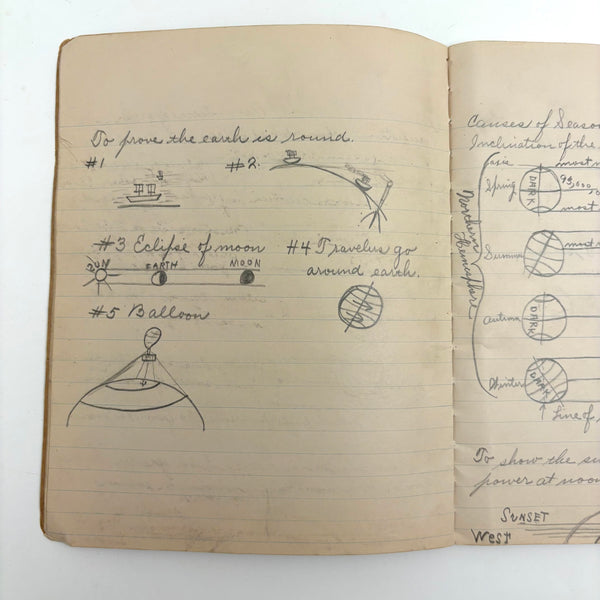 To prove the earth is round.
#1
#2.
#3 Eclipse of moon
SUN
EARTH
MOON
#4 Travelus go
around earth.
#5 Balloon
Causes of Seaso
Inclination of the
axis
most
Northern
Hemisphere
Spring
DARK
93,000,
most
Summer
most
Autumn
DARK
Winter
DARK
↑ Line of
To show the su
power at noon
SUNSET
West